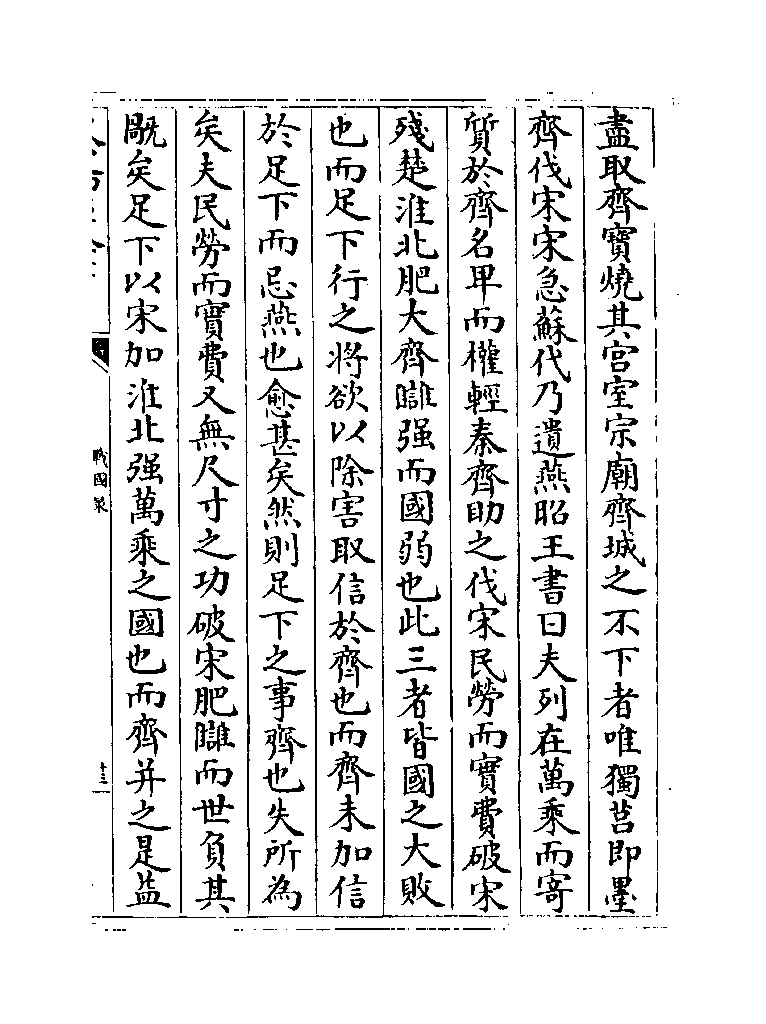 盡取齊寳燒其宫室宗廟齊城之不下者唯獨莒即墨
齊伐宋宋急蘇代乃遺燕昭王書曰夫列在萬乘而寄
質於齊名卑而權輕秦齊助之伐宋民勞而實費破宋
殘楚淮北肥大齊讎强而國弱也此三者皆國之大敗
也而足下行之將欲以除害取信於齊也而齊未加信
於足下而忌燕也愈甚矣然則足下之事齊也失所為
矣夫民勞而實費又無尺寸之功破宋肥讎而世負其
禍矣足下以宋加淮北强萬乘之國也而齊并之是益
戰國策
十三